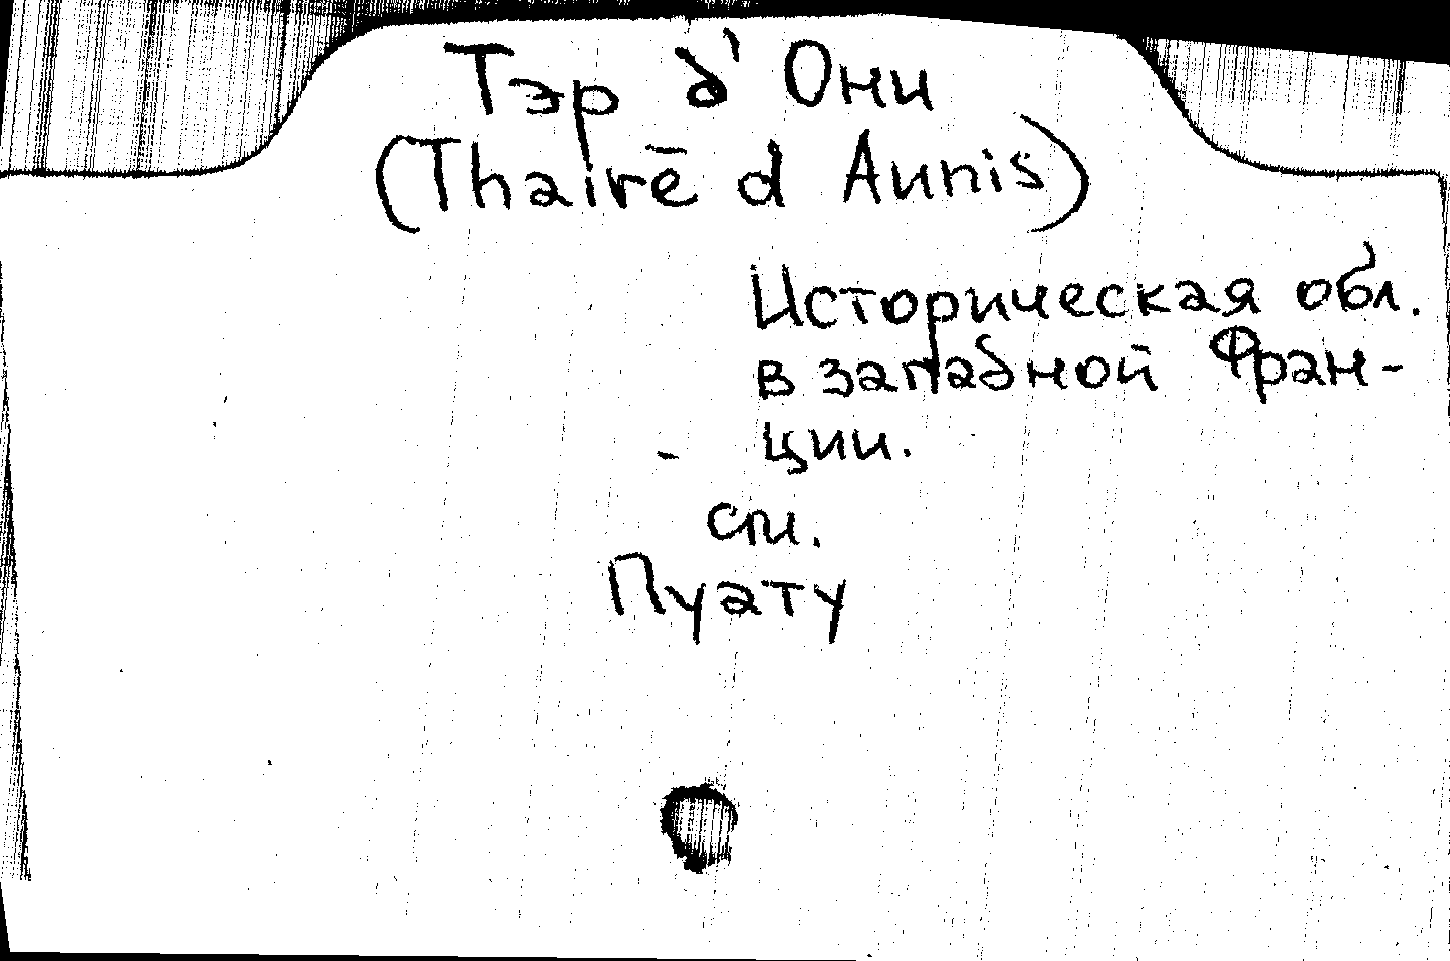 Тэр д' Они
(Thairē d Aunis)
Историческая обл.
в западной Фран-
ции.
см.
Пуату